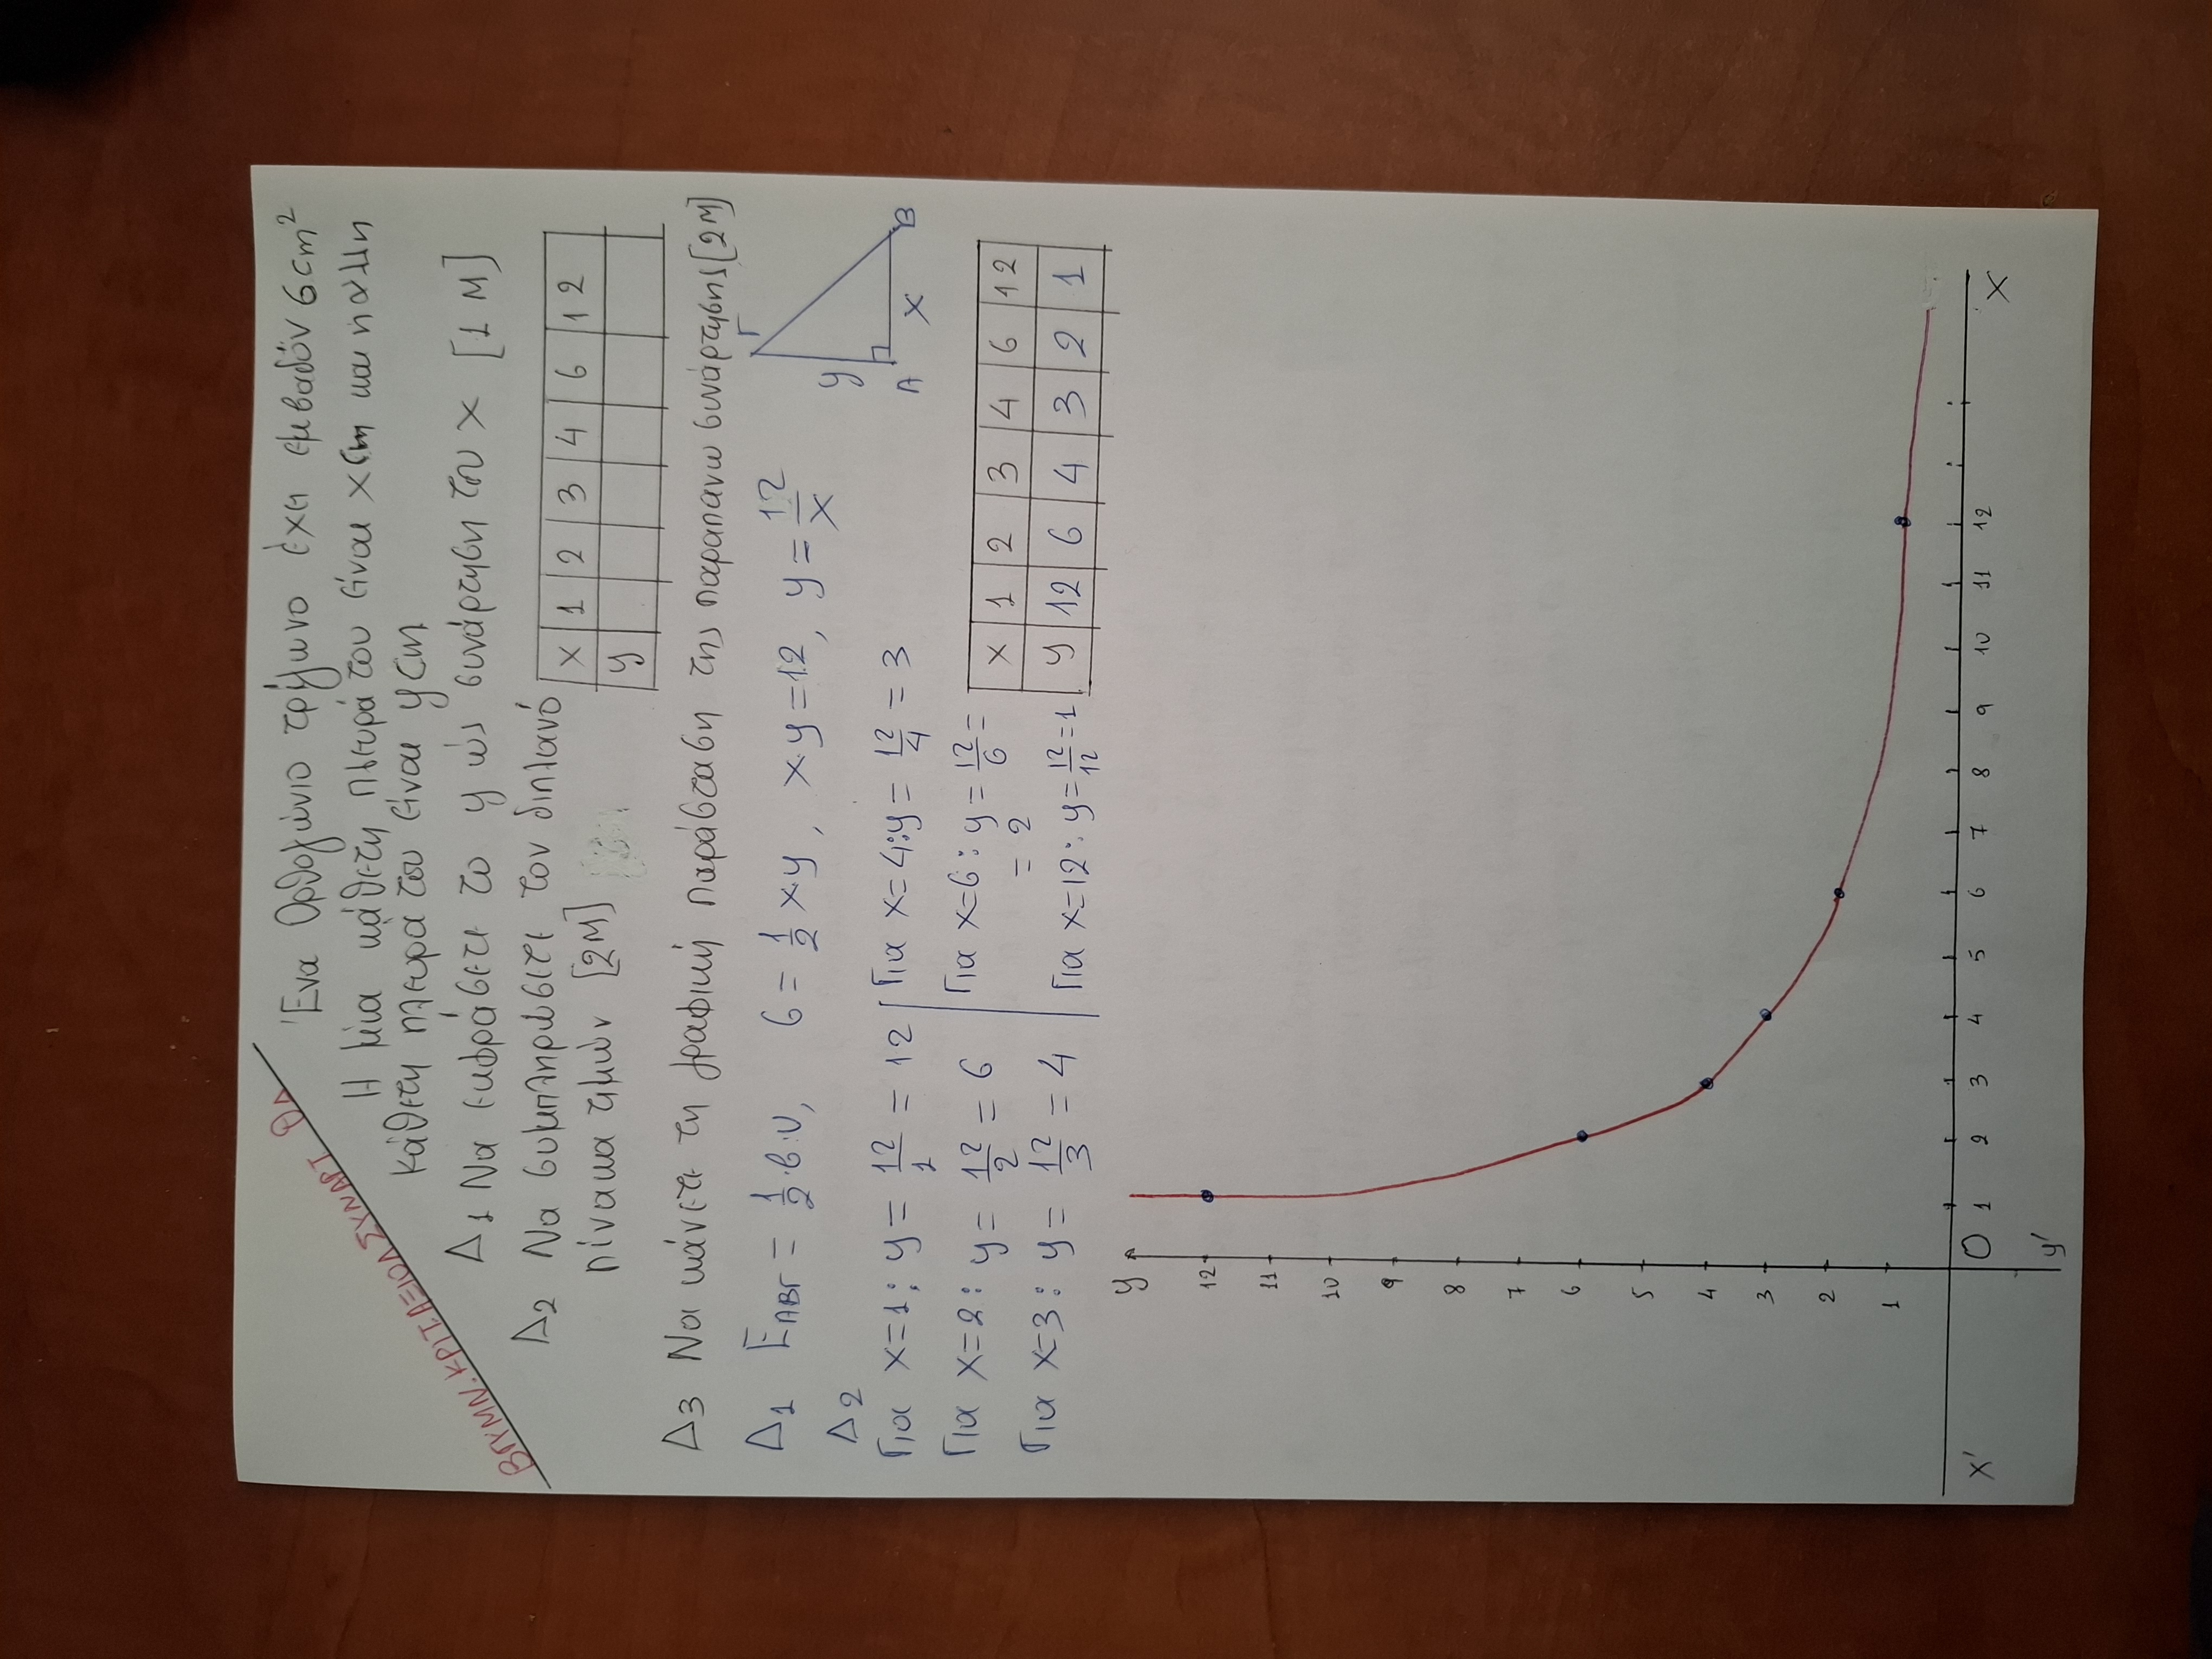 Β ΓΥΜΝ. ΚΡΙΤ. ΑΞΙΟΛ ΣΥΝΑΡΤ
Ένα Ορθογώνιο τρίγωνο έχει εμβαδόν 6 cm²
Η μία κάθετη πλευρά του είναι x cm και η άλλη
κάθετη πλευρα του είναι y cm
Δ1 Να εκφράσετε το y ώς συνάρτηση του x [1 Μ]
Δ2 Να συμπληρώσετε τον διπλανό
πίνακα τιμών [2Μ]
x 1 2 3 4 6 12
y
Δ3 Να κάνετε τη γραφική παράσταση της παραπανω συνάρτησης [2Μ]
Δ1 ΕΑΒΓ = 1/2·β·υ, 6 = 1/2 x·y, x·y = 12, y = 12/x
Γ
y
A
x
B
Δ2
Για x=1: y = 12/1 = 12
Για x=2: y = 12/2 = 6
Για x=3: y = 12/3 = 4
Για x=4: y = 12/4 = 3
Για x=6: y = 12/6 =
= 2
Για x=12: y = 12/12 = 1
x 1 2 3 4 6 12
y 12 6 4 3 2 1
y
12
11
10
9
8
7
6
5
4
3
2
1
x' O 1 2 3 4 5 6 7 8 9 10 11 12 x
y'